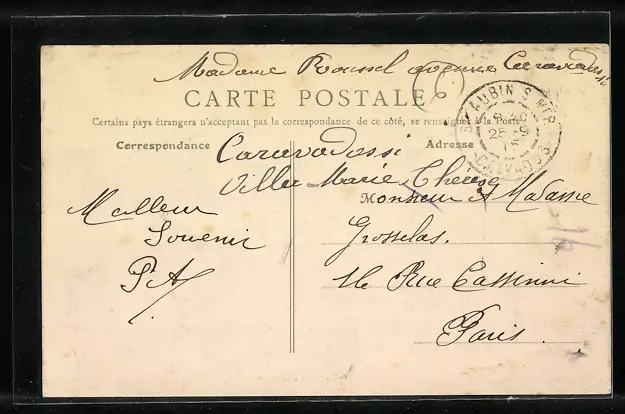 Madame Roussel avenue Caravadossi
CARTE POSTALE
Certains pays étrangers n'acceptent pas la correspondance de ce côté, se renseigner à la Poste
Correspondance
Adresse
Caravadossi
Villa Marie Thérèse
Meilleur
Souvenir
P A
Monsieur & Madame
Grosselas.
Rue Cassini
Paris.
ST AUBIN S MER
25-9
CALVADOS